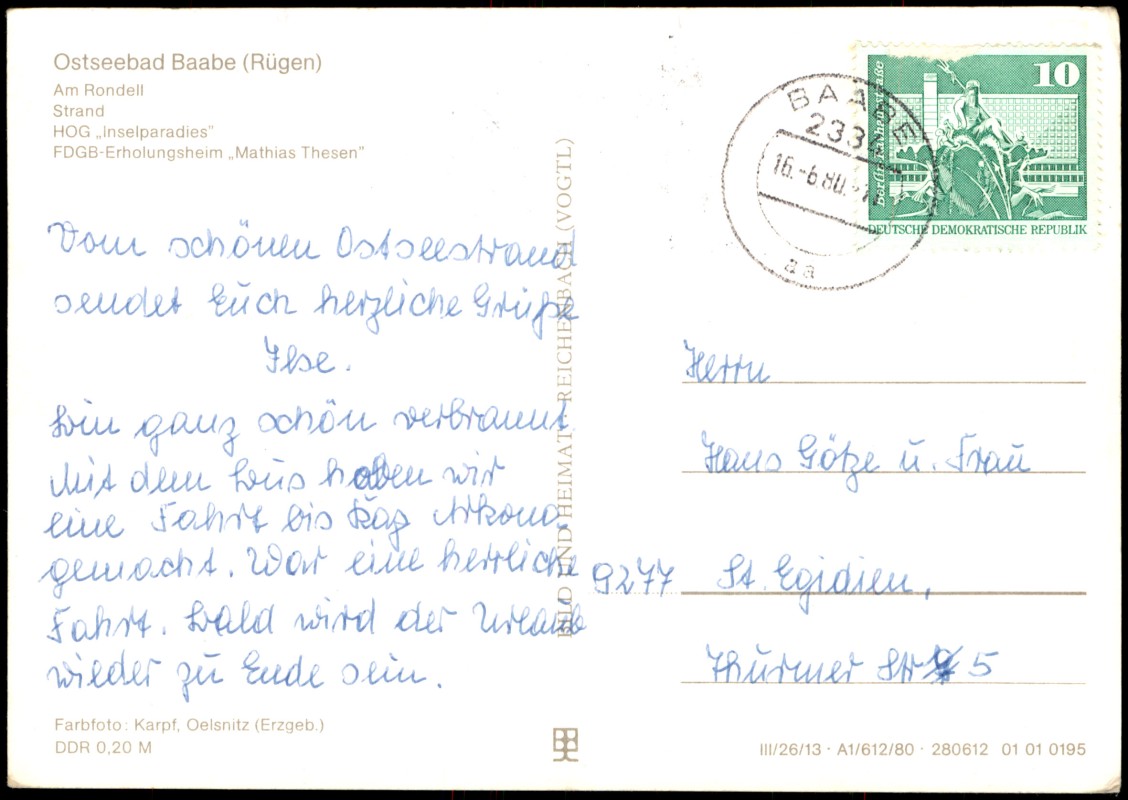 Ostseebad Baabe (Rügen)
Am Rondell
Strand
HOG „Inselparadies"
FDGB-Erholungsheim „Mathias Thesen"
Vom schönen Ostseestrand
sendet Euch herzliche Grüße
Ilse.
Bin ganz schön verbrannt.
Mit dem Bus haben wir
eine Fahrt bis Kap Arkona
gemacht. War eine herrliche
Fahrt. Bald wird der Urlaub
wieder zu Ende sein.
Farbfoto: Karpf, Oelsnitz (Erzgeb.)
DDR 0,20 M
BILD UND HEIMAT REICHENBACH (VOGTL)
BAABE
233
16.-6.80
aa
10
Berlin, Rathausstraße
DEUTSCHE DEMOKRATISCHE REPUBLIK
Herrn
Hans Götze u. Frau
9277 St. Egidien,
Thurmer Str 5
III/26/13 · A1/612/80 · 280612 01 01 0195